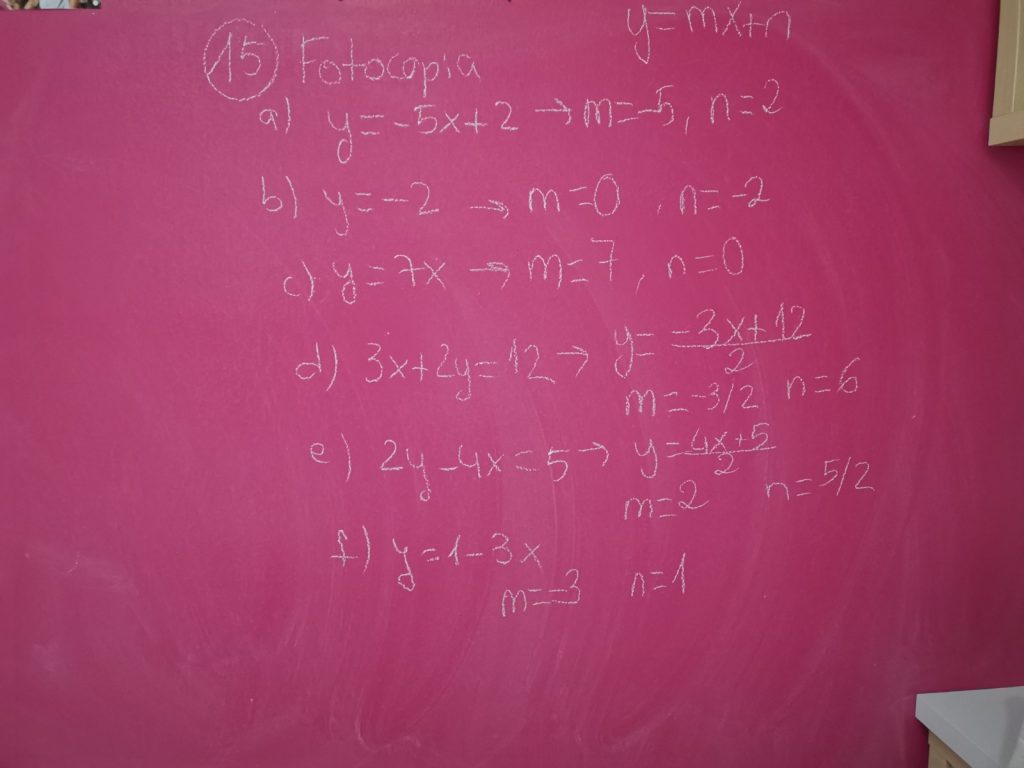 y=mx+n
15 Fotocopia
a) y=-5x+2 → m=-5, n=2
b) y=-2 → m=0, n=-2
c) y=7x → m=7, n=0
d) 3x+2y=12 → y= -3x+12 / 2
m=-3/2 n=6
e) 2y-4x=5 → y= 4x+5 / 2
m=2 n=5/2
f) y=1-3x
m=-3 n=1